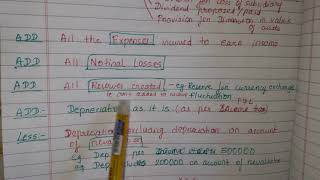 for loss of subsidiary
Dividend proposed/paid
Provision for Diminution in value
of assets
ADD All the Expenses incurred to earn income
ADD All Notional Losses
ADD All Reserves created eg Reserve for currency exchange
fluctuation
ADD Depreciation as it is (as per Income tax)
Less:- Depreciation excluding depreciation on account
of revaluation
eg. 500000
eg. 200000 on account of revaluation